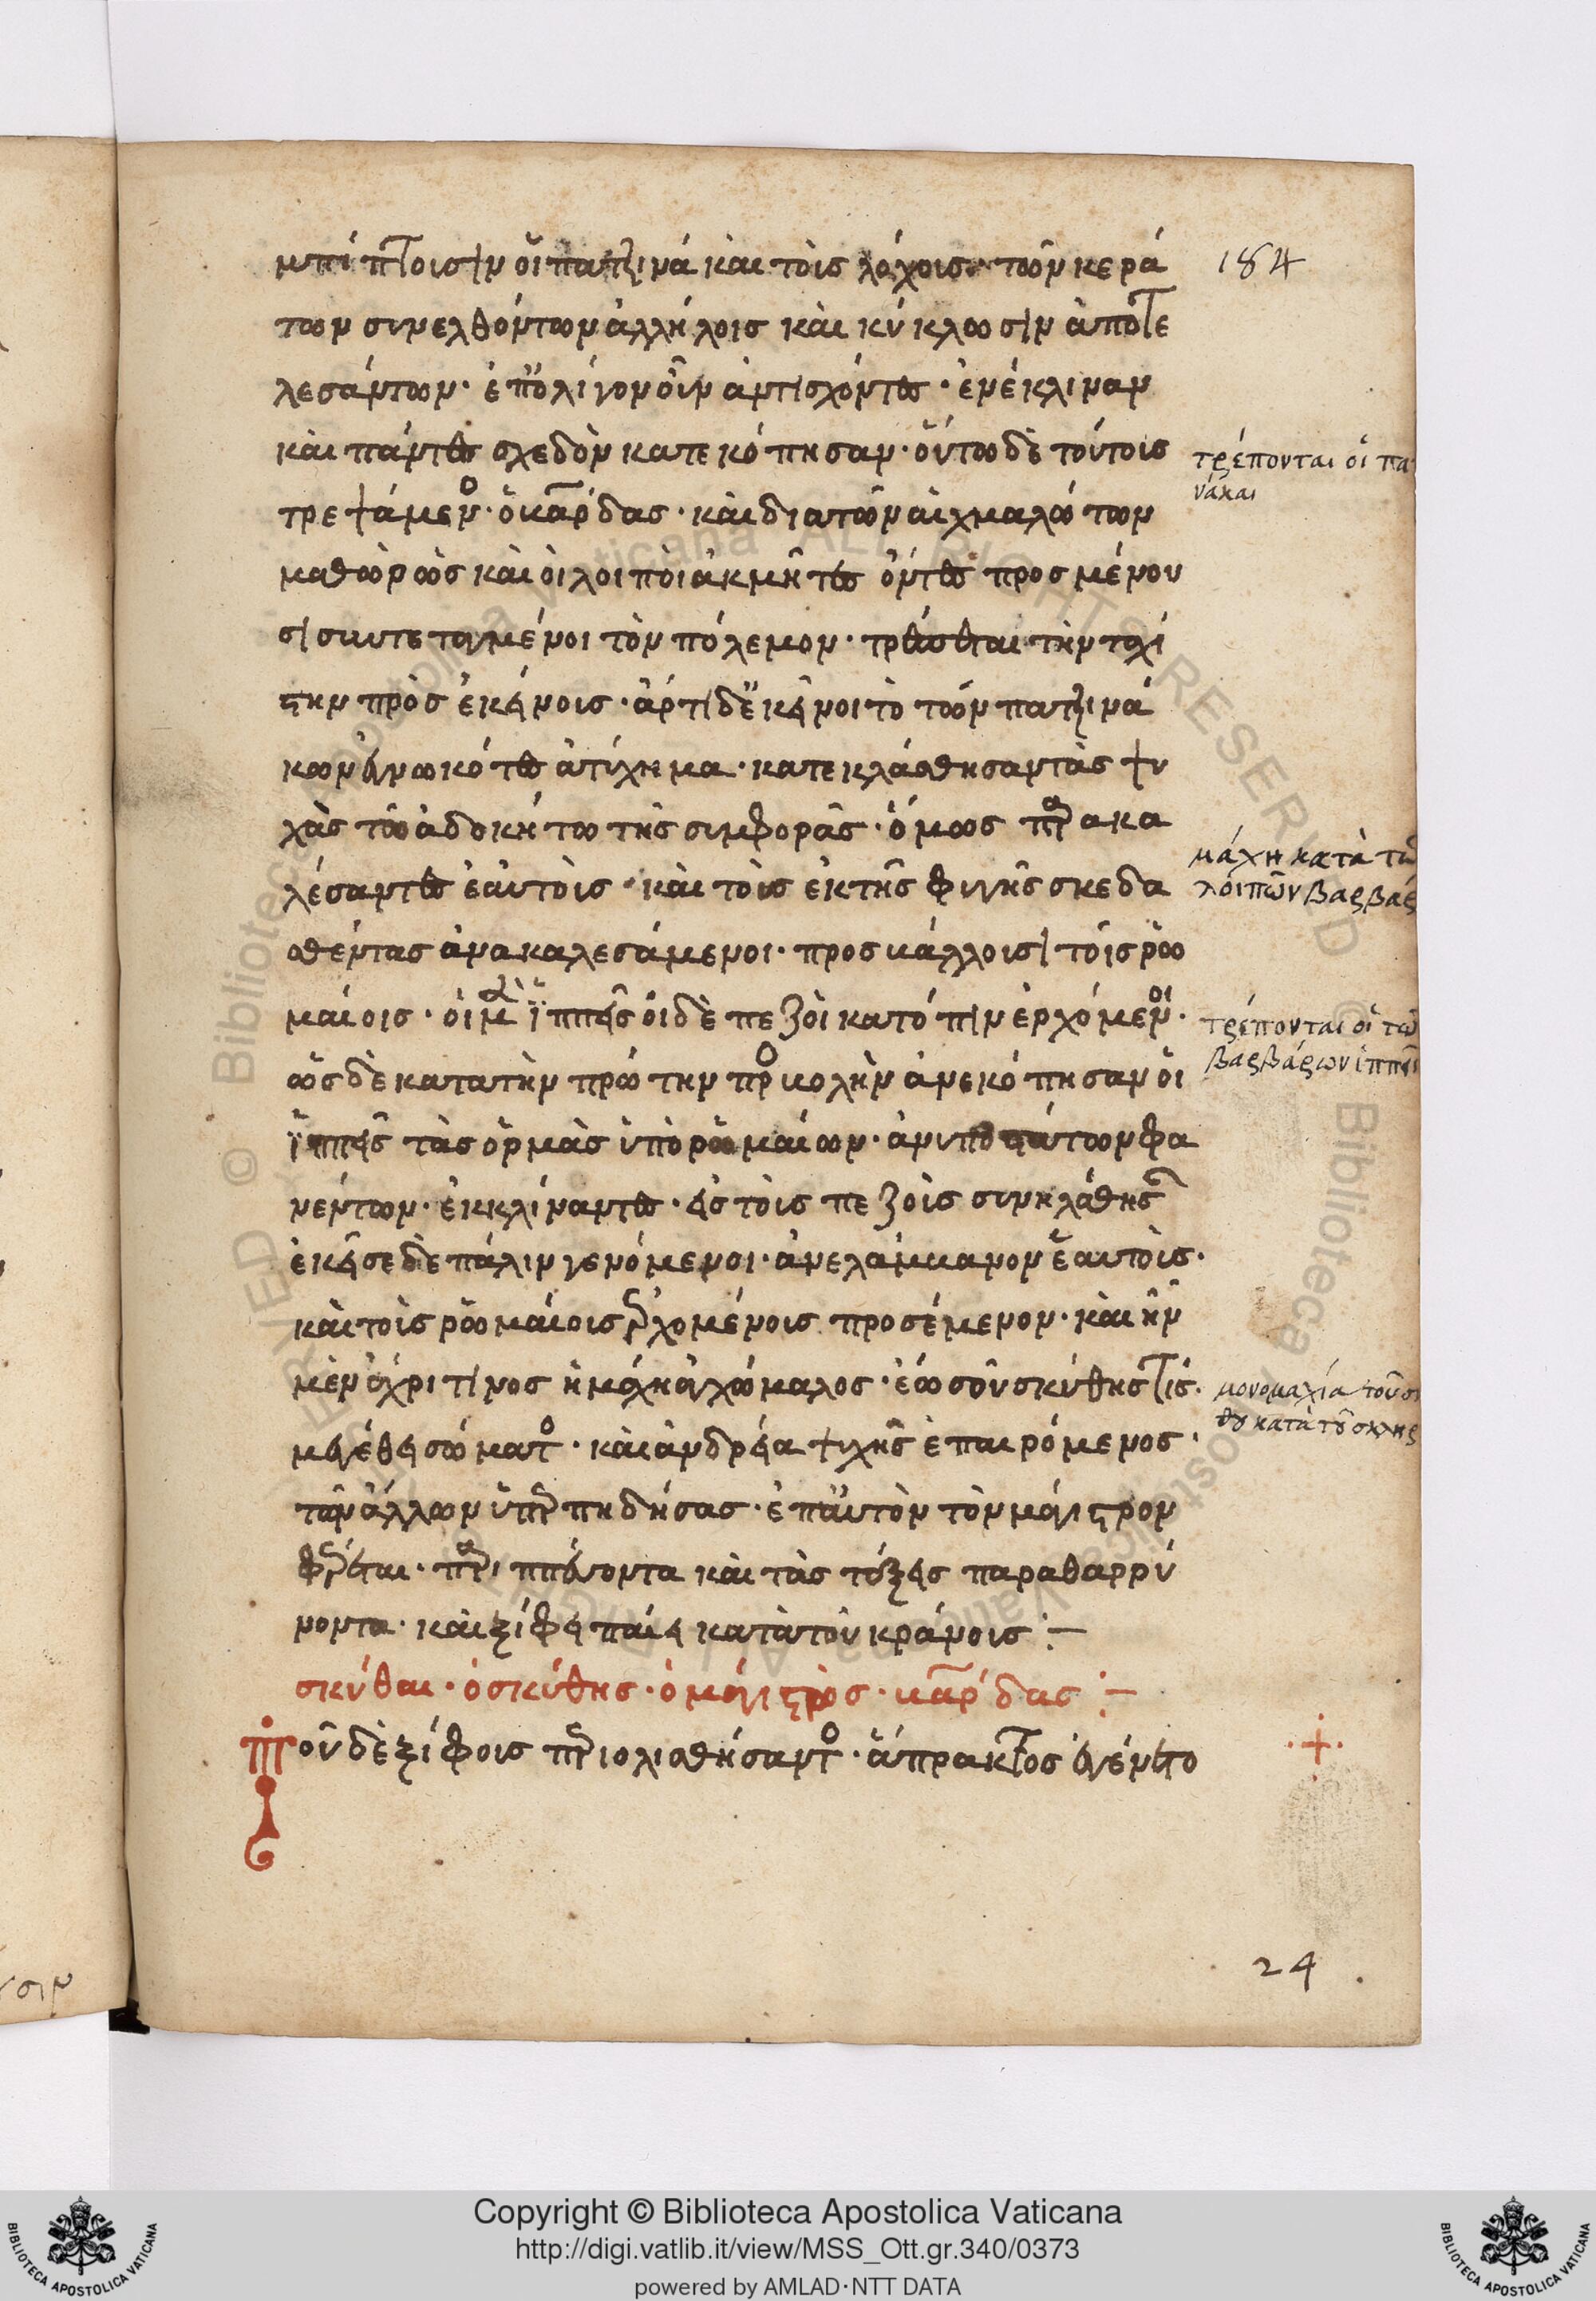 μπίπτουσιν οἱ πατζινάκαι τοῖς λόχοις· τῶν κερά
των συνελθόντων ἀλλήλοις καὶ κύκλωσιν ἀποτε
λεσάντων· ἐπ' ὀλίγον οὖν ἀντισχόντες· ἐνέκλιναν
καὶ πάντες σχεδὸν κατεκόπησαν· οὕτω δὲ τούτους
τρεψάμενος· ὁ βάρδας· καὶ διὰ τῶν αἰχμαλώτων
μαθὼν ὡς καὶ οἱ λοιποὶ ἀκμῆτες ὄντες προσμένου
σι συντεταγμένοι τὸν πόλεμον· τρέπεται τὴν ταχί
στην πρὸς ἐκείνους· ἄρτι δὲ κεῖνοι τὸ τῶν πατζινά
κων ἐγνωκότες ἀτύχημα· κατεκλάσθησαν τὰς ψυ
χὰς τῷ ἀδοκήτῳ τῆς συμφορᾶς· ὅμως παρακα
λέσαντες ἑαυτοὺς· καὶ τοὺς ἐκ τῆς φυγῆς σκεδα
σθέντας ἀνακαλεσάμενοι· προσβάλλουσι τοῖς ῥω
μαίοις· οἱ μὲν ἱππεῖς οἱ δὲ πεζοὶ κατόπιν ἐρχόμενοι·
ὡς δὲ κατὰ τὴν πρώτην προσβολὴν ἀνεκόπησαν οἱ
ἱππεῖς τὰς ὁρμὰς ὑπὸ ῥωμαίων· ἀνυποστάτων φα
νέντων· ἐκκλίναντες· εἰς τοὺς πεζοὺς συνηλάθησαν
ἐκεῖσε δὲ πάλιν γενόμενοι· ἀνελάμβανον ἑαυτοὺς·
καὶ τοὺς ῥωμαίους ἐρχομένους προσέμενον· καὶ ἦν
μὲν ἄχρι τινὸς ἡ μάχη ἀγχώμαλος· ἕως οὖν σκύθης τις·
μεγέθει σώματος· καὶ ἀνδρεία ψυχῆς ἐπαιρόμενος·
τῶν ἄλλων ὑπερπηδήσας· ἐπ' αὐτὸν τὸν μάγιστρον
φέρεται· παριππεύοντα καὶ τὰς τάξεις παραθαρρύ
νοντα· καὶ ξίφει παίει κατὰ τοῦ κράνους :–
σκύθαι· ὁ σκύθης· ὁ μάγιστρος· βάρδας :–
Τοῦ δὲ ξίφους περιολισθήσαντος· ἄπρακτος ἐγένετο
184
τρέπονται οἱ πα
νάκαι
μάχη κατὰ τῶ
λοιπῶν βαρβάρ
τρέπονται οἱ τῶ
βαρβάρων ἱππεῖ
μονομαχία τοῦ σ
θου κατὰ τοῦ σκλης
24
Copyright © Biblioteca Apostolica Vaticana
http://digi.vatlib.it/view/MSS_Ott.gr.340/0373
powered by AMLAD·NTT DATA